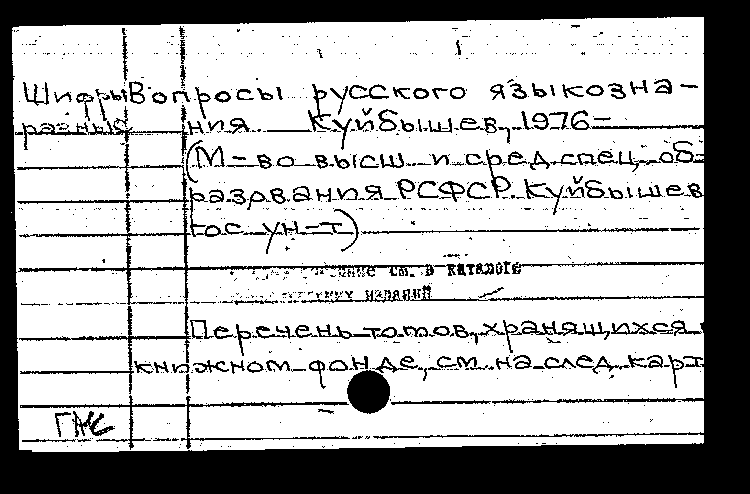 Шифры Вопросы русского языкозна-
разные ния Куйбышев, 1976-
(М-во высш и сред. спец, об-
разования РСФСР. Куйбышев
гос ун-т)
см. в каталоге
изданий
Перечень томов, хранящихся
книжном фонде, см. на след. карт